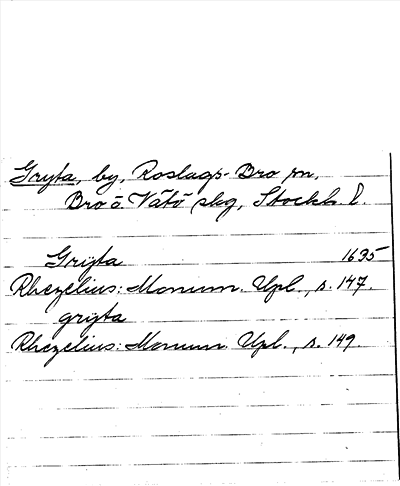 Gryta, by, Roslags-Bro sn,
Bro o. Vätö skg, Stockh. l.
Grijta 1635
Rhezelius: Monum. Upl., s. 147.
grijta
Rhezelius: Monum. Upl., s. 149.